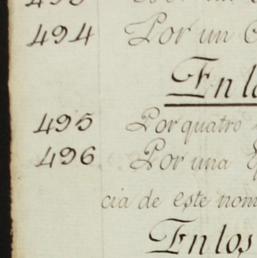 494 Por un
En la
495 Por quatro
496 Por una
cia de este nom
En los